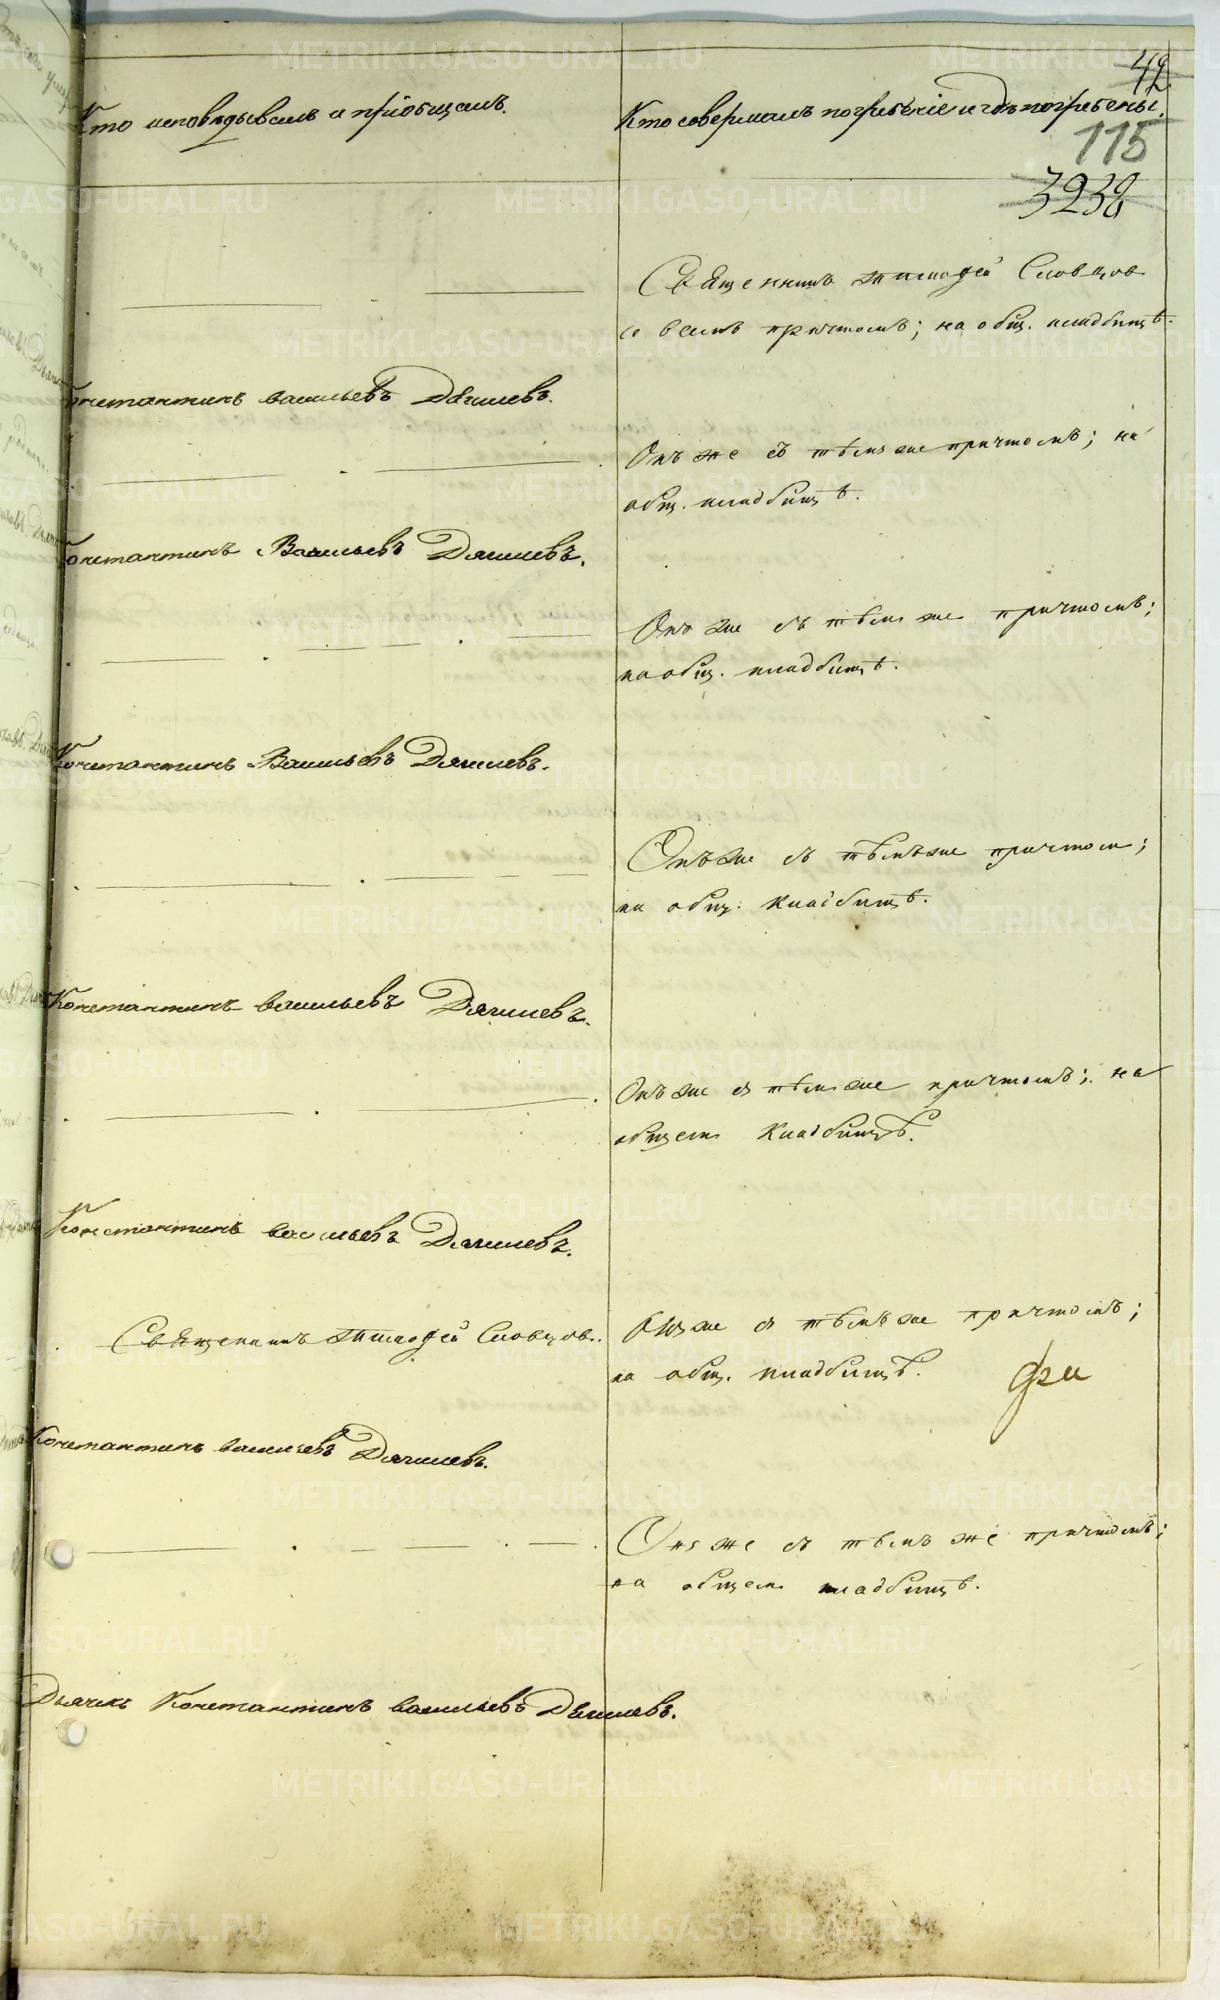 42
Кто исповѣдывалъ и прiобщалъ.
Кто совершалъ погребенiе и гдѣ погребены.
115
3238
Священникъ Тимофей Словцов
со всѣмъ причтомъ; на общ. кладбищѣ.
Константинъ Васильевъ Дягилевъ.
Онъ же съ тѣмъ же причтомъ; на
общ. кладбищѣ.
Константинъ Васильевъ Дягилевъ.
Онъ же съ тѣмъ же причтомъ;
на общ. кладбищѣ.
Константинъ Васильевъ Дягилевъ.
Онъ же съ тѣмъ же причтом;
на общ. кладбищѣ.
Константинъ Васильевъ Дягилевъ.
Онъ же съ тѣмъ же причтомъ; на
общем кладбищѣ.
Константинъ Васильевъ Дягилевъ.
Священникъ Тимофей Словцов.
Онъ же съ тѣмъ же причтомъ;
на общ. кладбищѣ.
Константинъ Васильевъ Дягилевъ.
Онъ же съ тѣмъ же причтомъ;
на общем кладбищѣ.
Дьячекъ Константинъ Васильевъ Дягилевъ.
METRIKI.GASO-URAL.RU